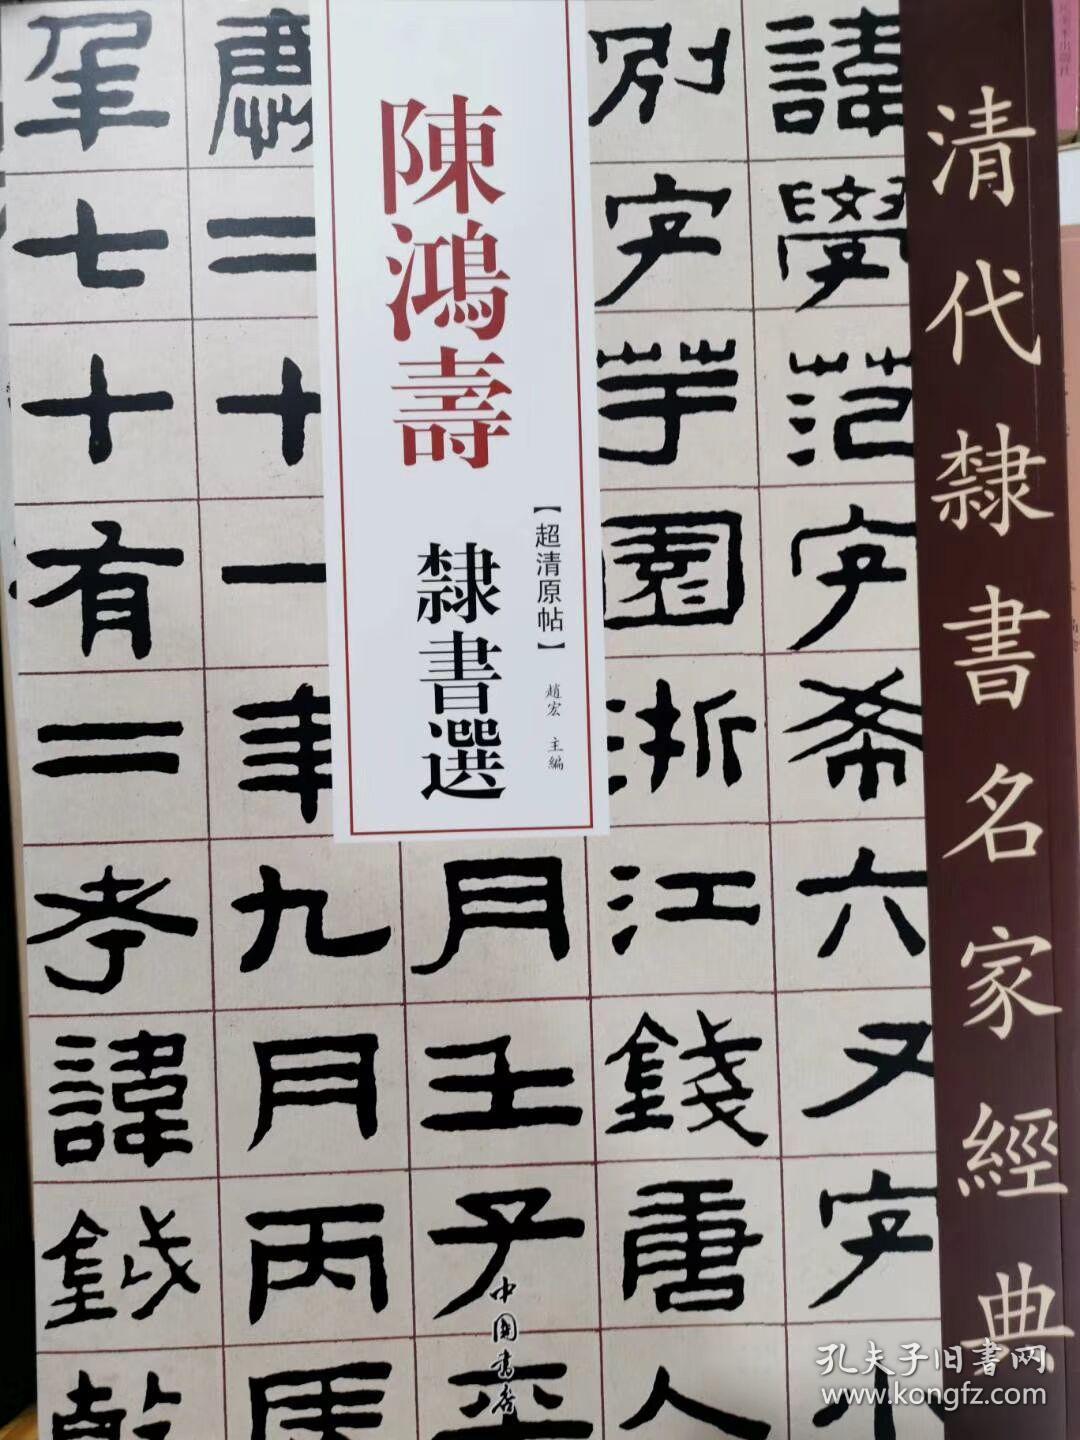 清代隸書名家經典
陳鴻壽
隸書選
【超清原帖】
趙宏 主編
諱學范字希六又字小
别字芋園浙江錢唐人
月壬子平
二十一年九月丙
年七十有二考諱鉞
中國書店
孔夫子旧書网
www.kongfz.com